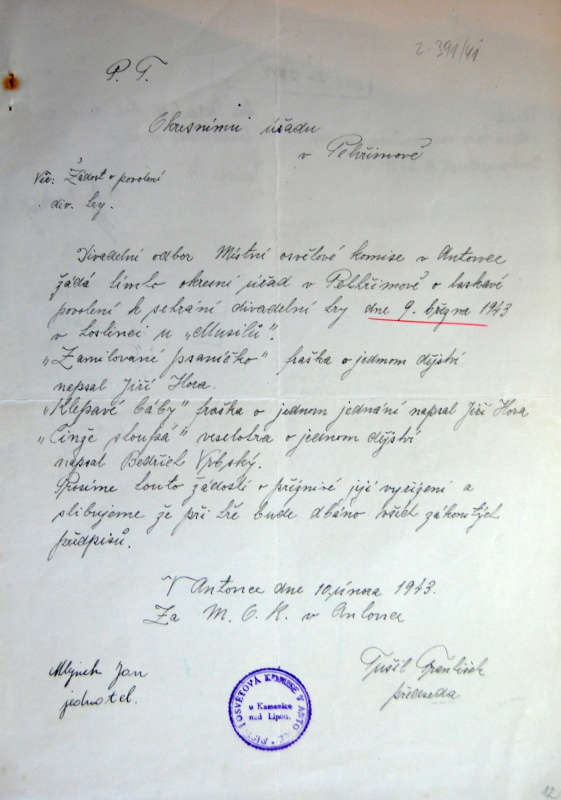 č. 391/41
P. T.
Okresnímu úřadu
v Pelhřimově
Věc: Žádost o povolení
div. hry.
Divadelní odbor Místní osvětové komise v Antonce
žádá tímto okresní úřad v Pelhřimově o laskavé
povolení k sehrání divadelní hry dne 9. března 1943
v hostinci u „Musilů".
„Zamilované psaníčko" fraška o jednom dějství
napsal Jiří Hora.
„Klepavé báby" fraška o jednom jednání napsal Jiří Hora
„Činže stoupá" veselohra o jednom dějství
napsal Bedřich Vrbský.
Prosíme touto žádostí o příznivé její vyřízení a
slibujeme že při hře bude dbáno všech zákonitých
předpisů.
V Antonce dne 10. února 1943.
Za M. O. K. v Antonce
Mlýnek Jan
jednatel.
Tušil František
předseda
OSVĚTOVÁ KOMISE V
u Kamenice
nad Lipou.
12